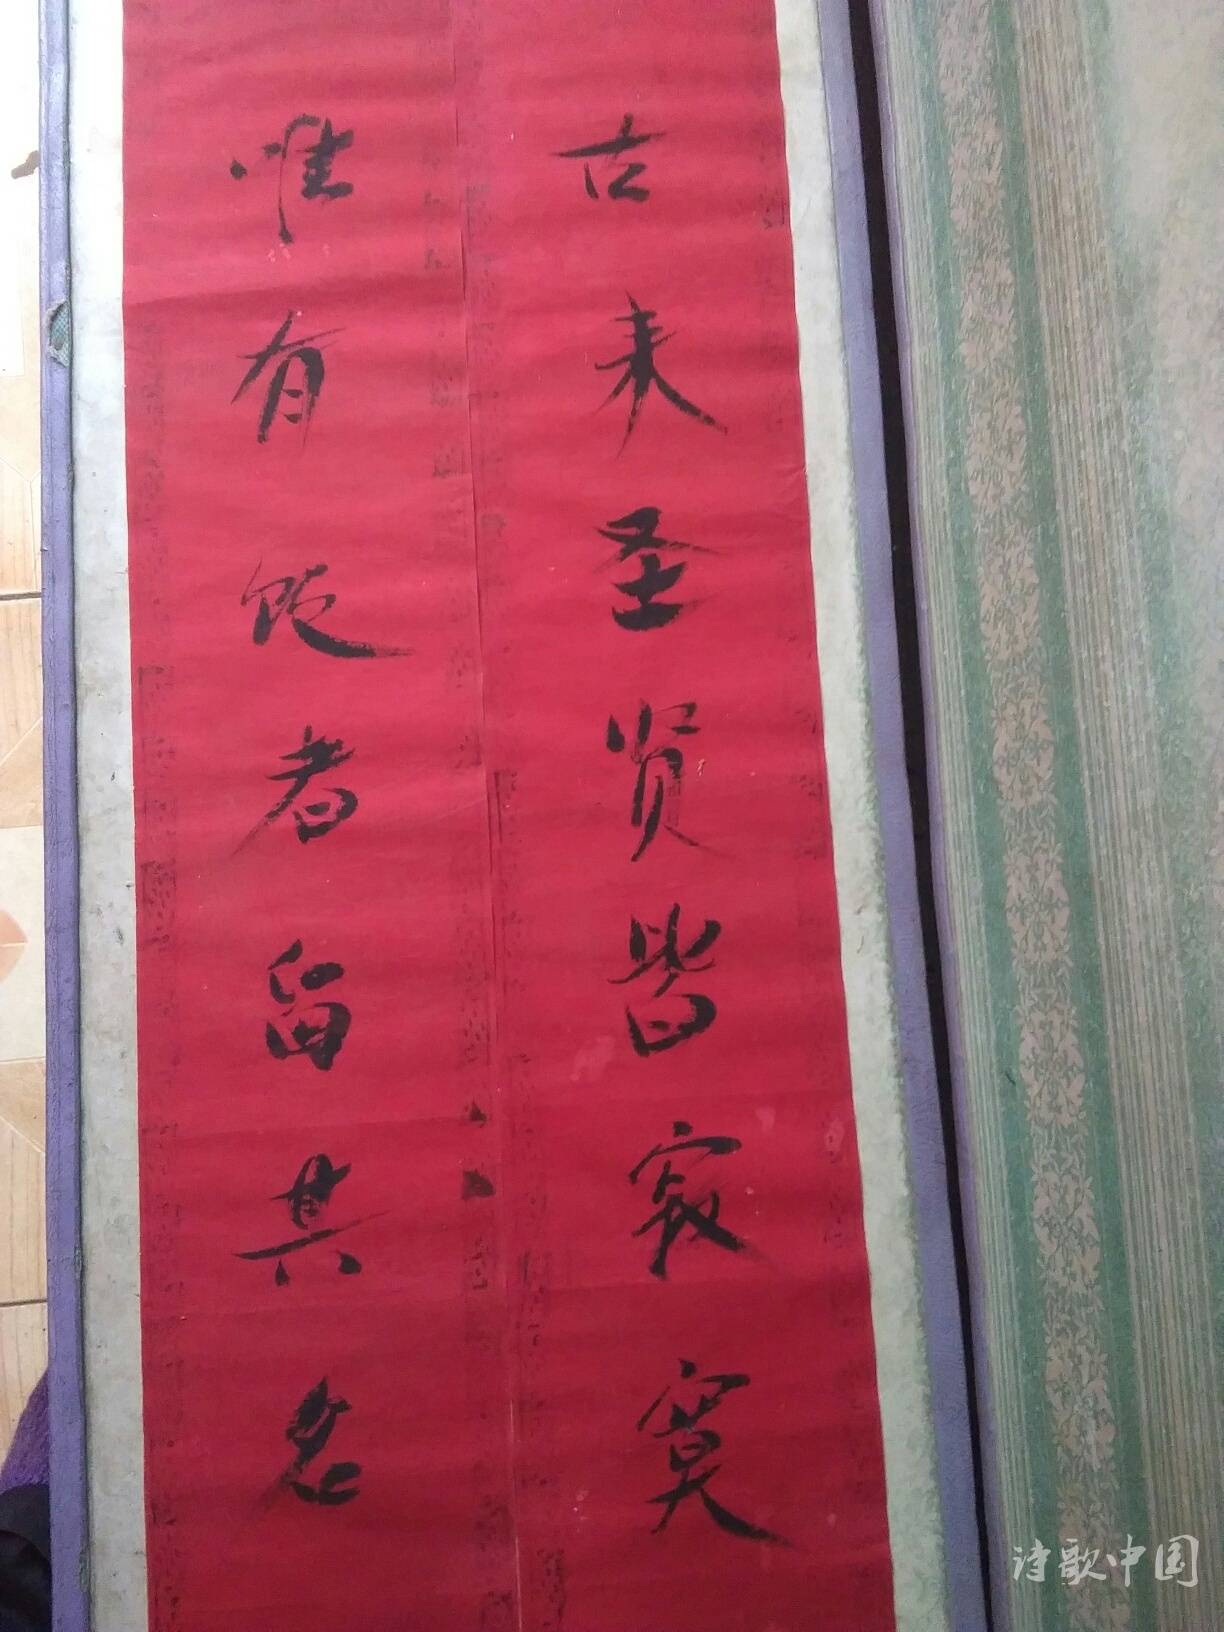 古来圣贤皆寂寞
唯有饮者留其名
诗歌中国